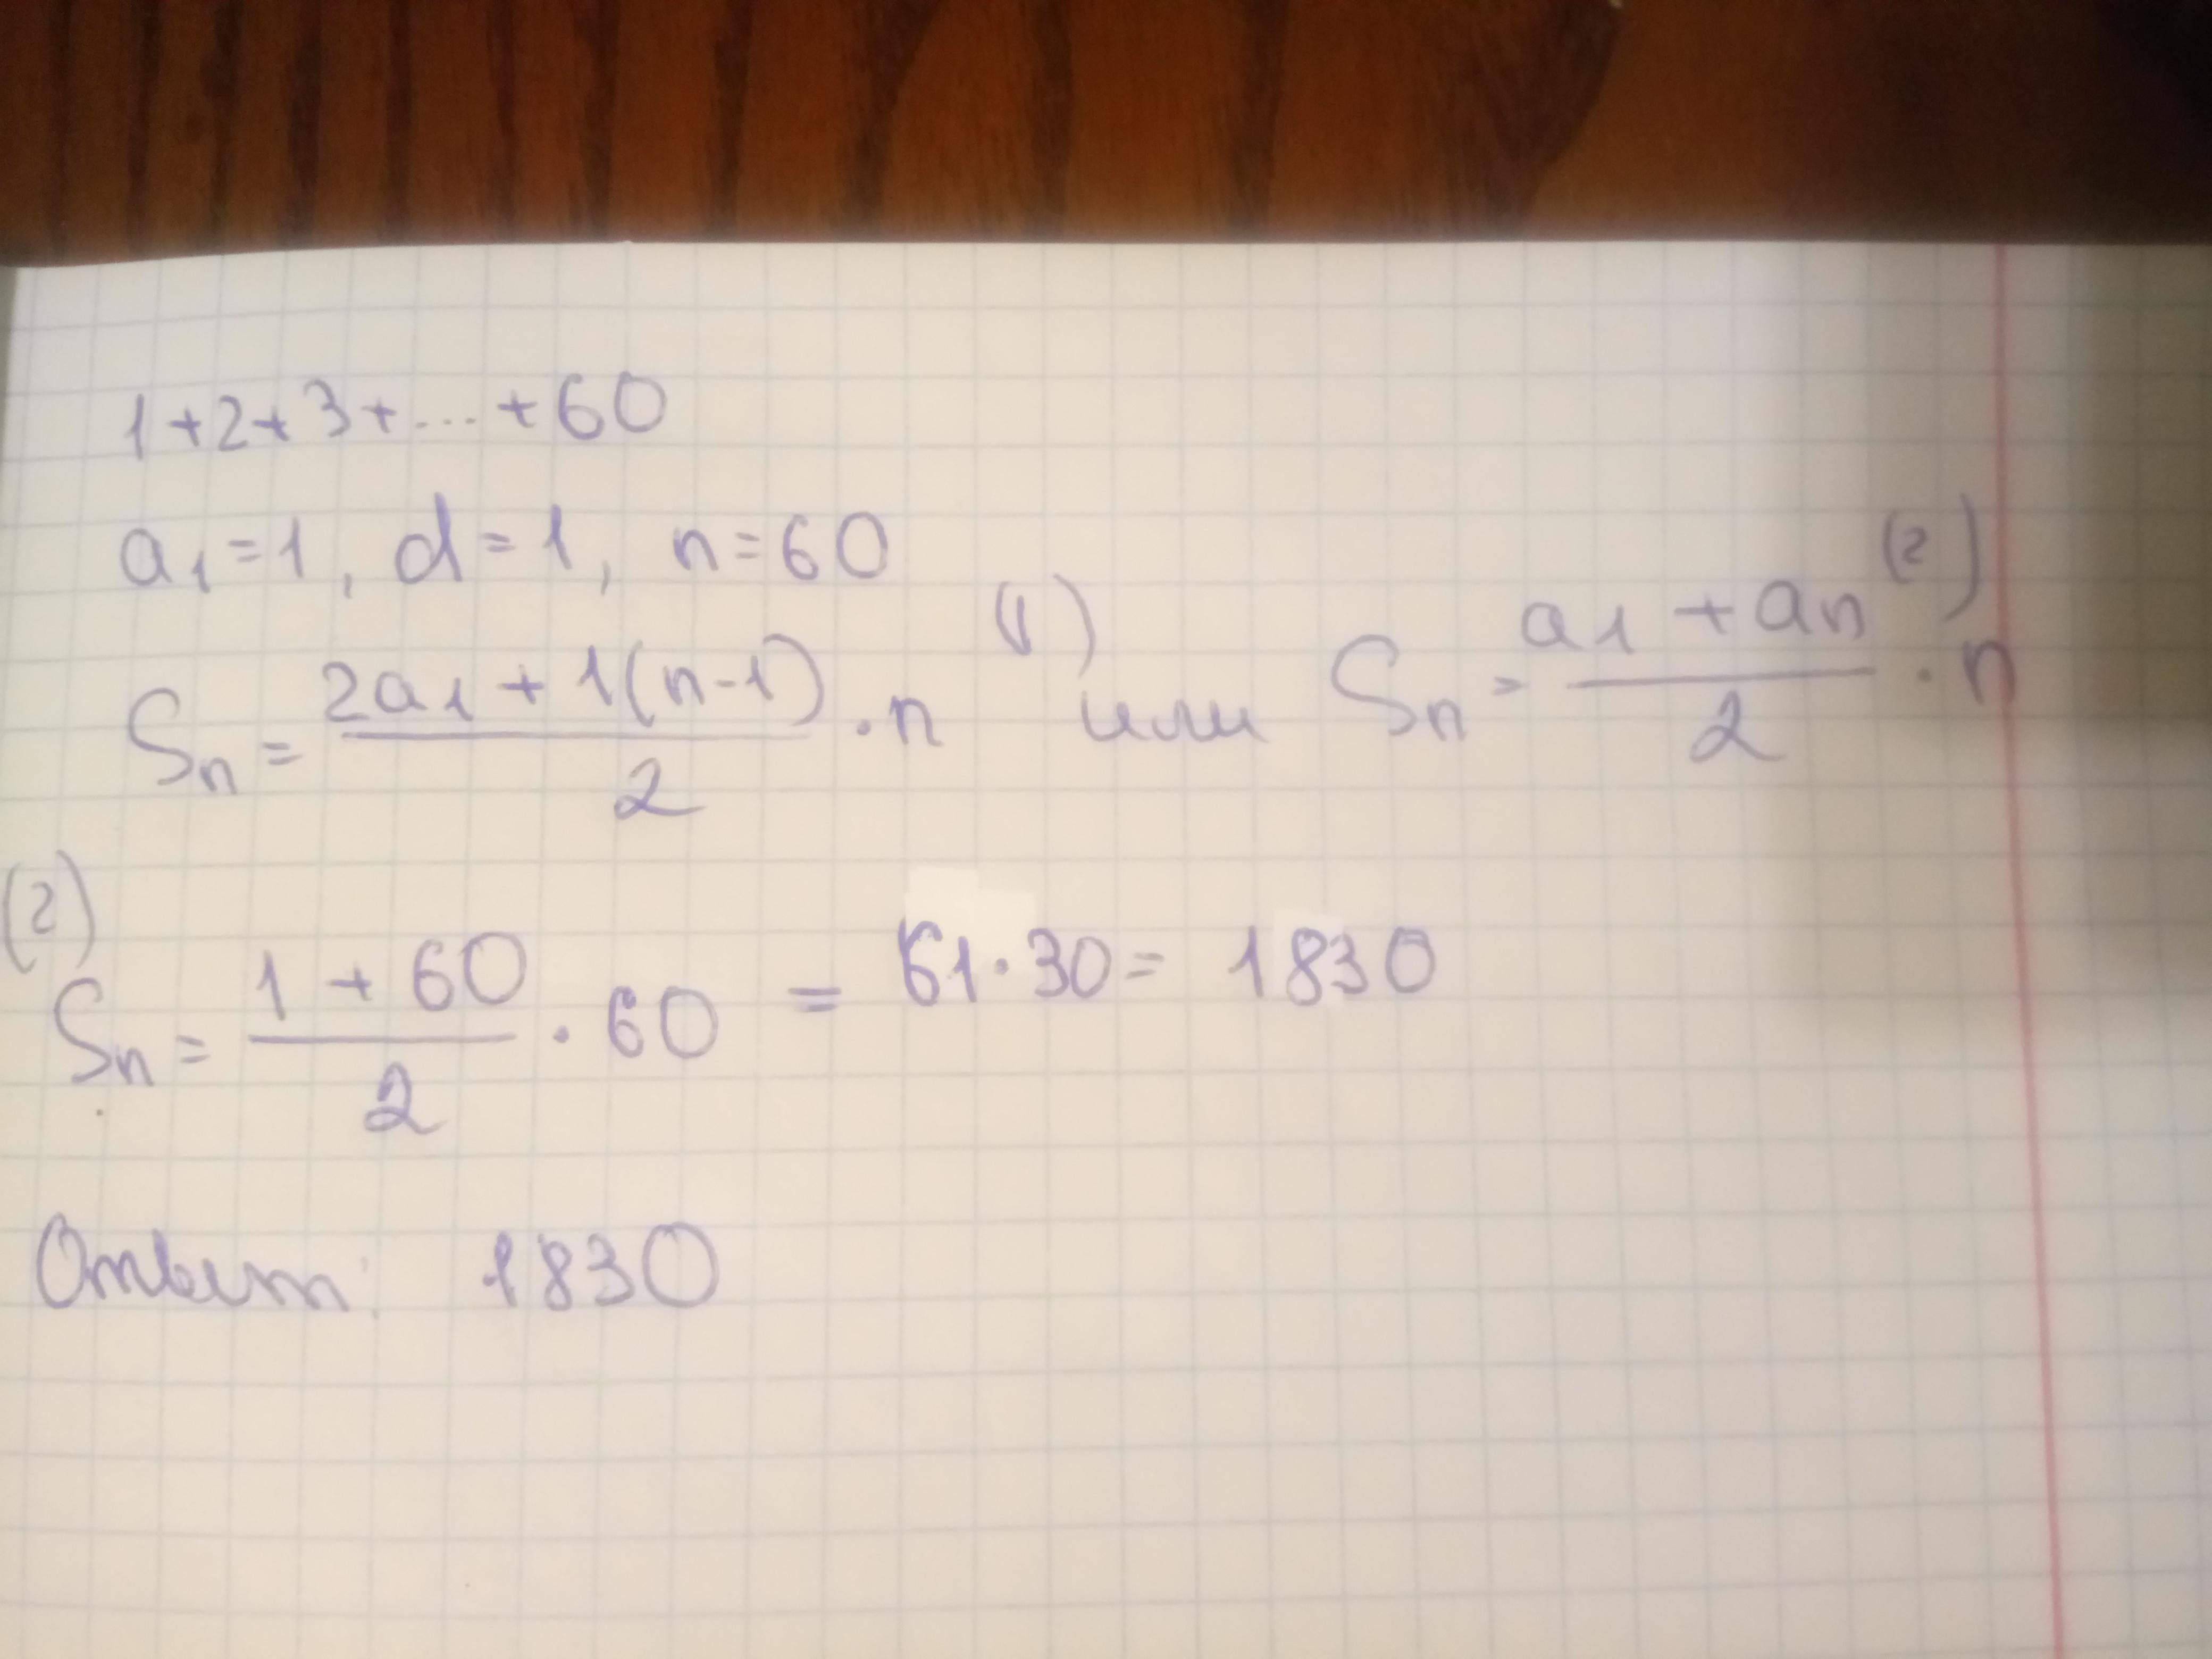 1+2+3+...+60
a₁=1, d=1, n=60
Sₙ = (2a₁ + 1(n-1))/2 · n (1) или Sₙ = (a₁ + aₙ)/2 · n (2)
(2)
Sₙ = (1 + 60)/2 · 60 = 61·30 = 1830
Ответ: 1830